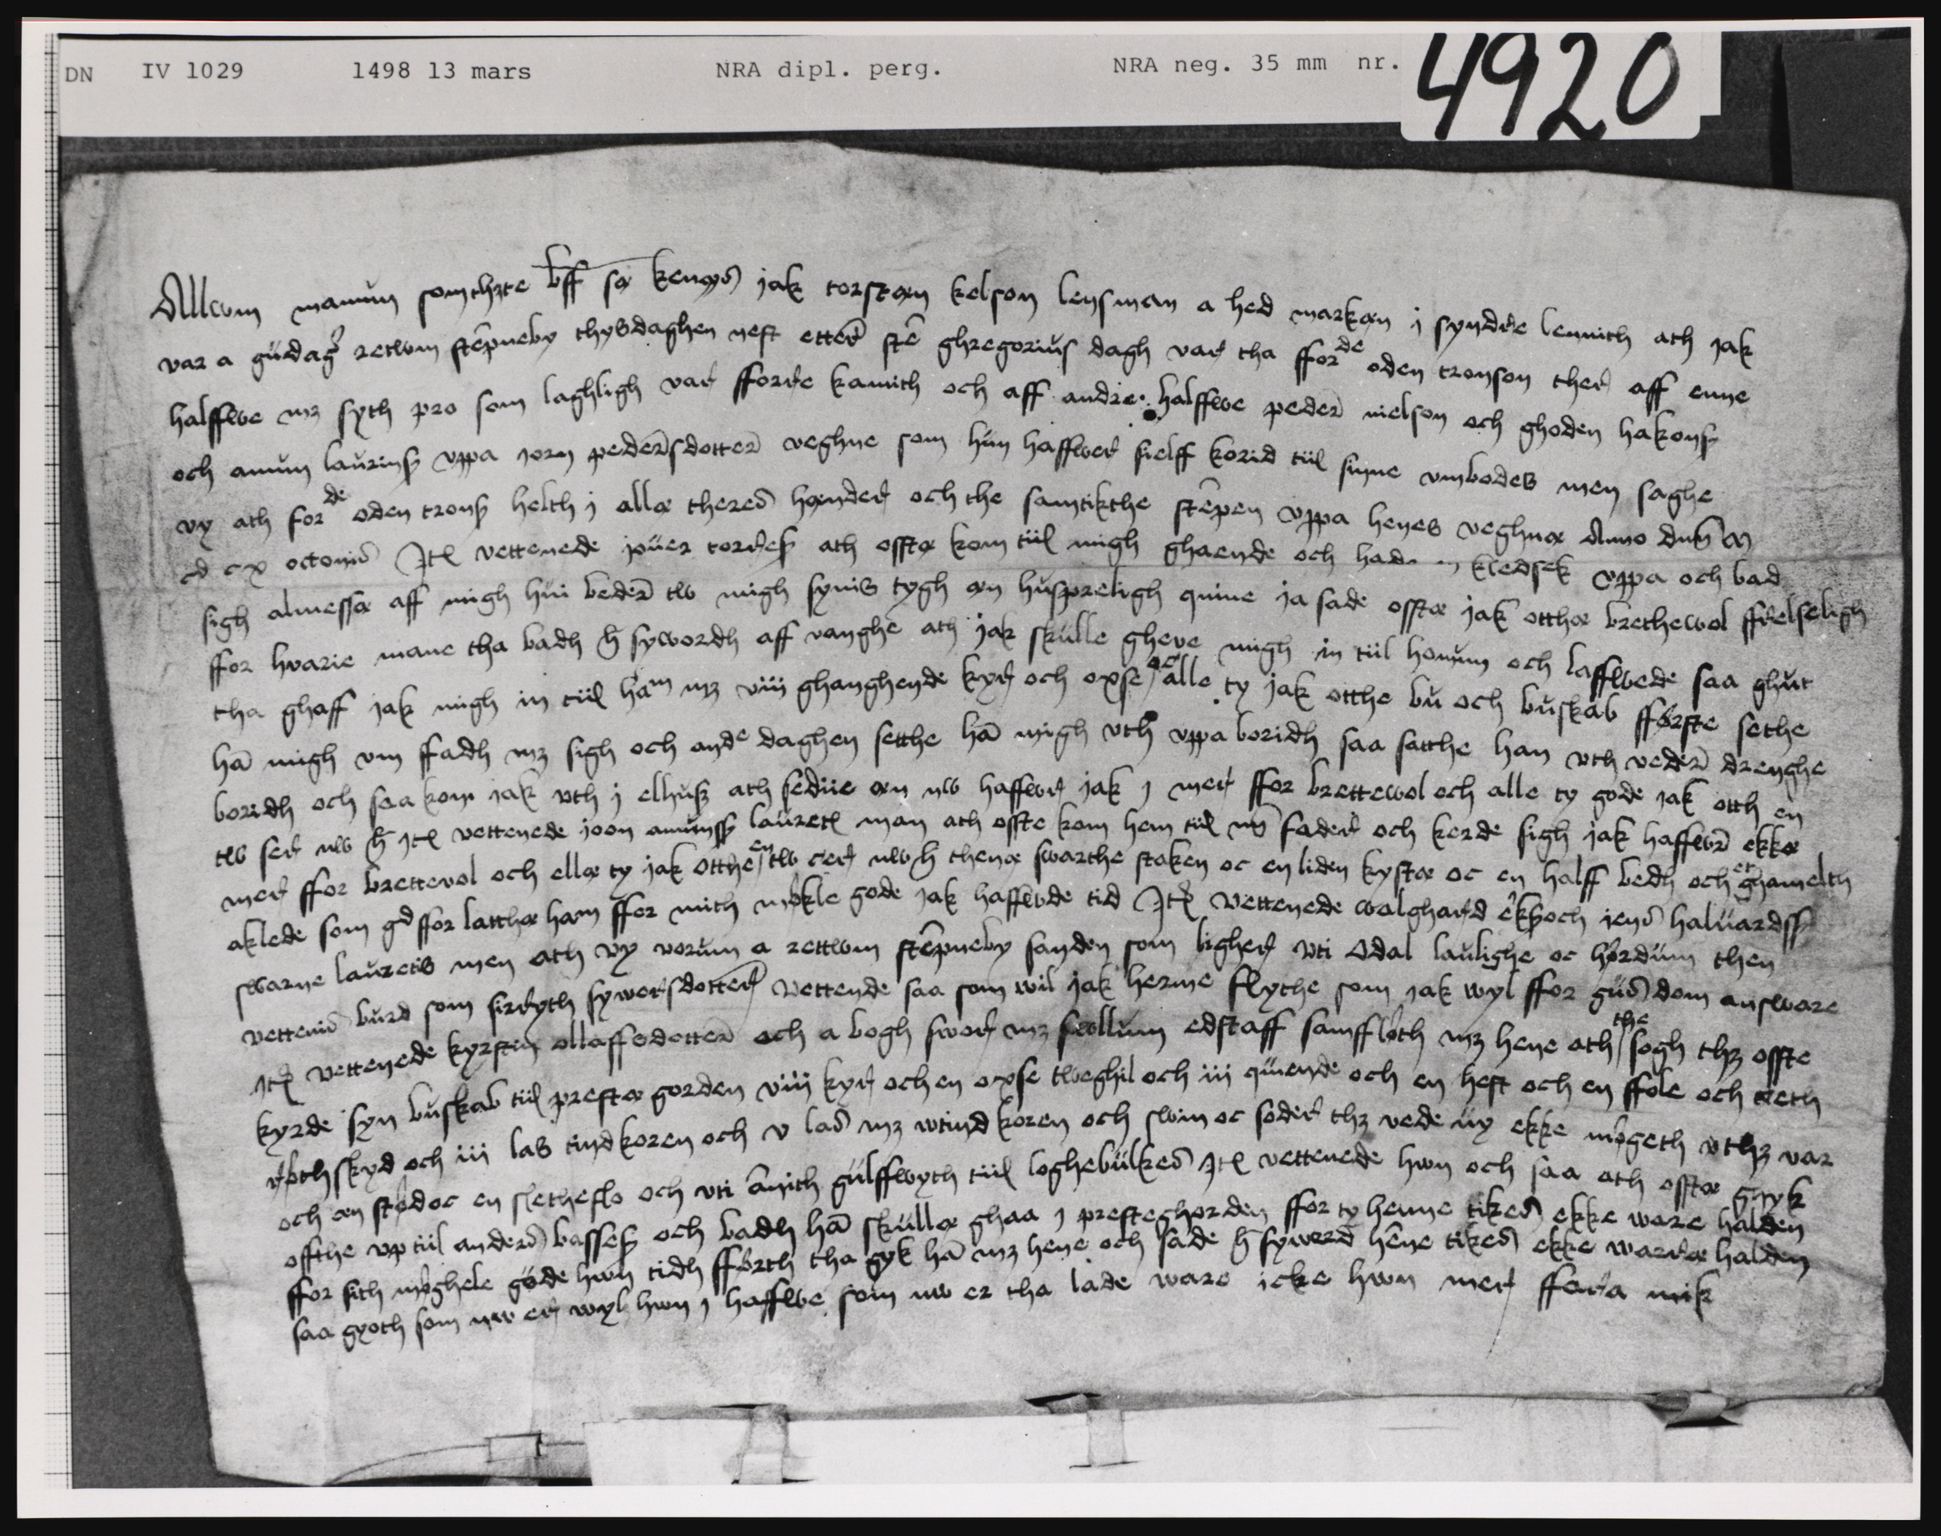 DN IV 1029 1498 13 mars NRA dipl. perg. NRA neg. 35 mm nr. 4920
Allwm mannum som thȝte bff sæ kennes jak torstæn kelson lensman a hed markæn j syndre lennith ath jak
var a gudagh retwm stempneby thysdaghen nest etter ste ghregorius dagh var tha fforde oden tronson ther aff enne
halffwe mȝ syth pro som laghligh var fforre kamith och aff andre halffwe peder nielson och ghoden hakonß
och amun laurinß vppa iorn pedersdotter veghne som hun haffwer sielff korid tiil sinne vmbodes men saghe
vy ath forde oden tronß helth j allæ theres hænder och the samtikthe stempen vppa henes veghnæ Anno dnī
cd cx octonis Jt vettenede juer torders ath offtæ kom tiil migh ghaende och had kledsek vppa och bad
sigh almessæ aff migh hui beder tw migh synis tygh æn huspreligh quine ja sade offtæ jak otthæ brethewol ffrelseligh
ffor hvarie mane tha badh h sywordh aff vanghe ath jak skulle gheve migh in tiil honum och laffwede saa ghut
tha ghaff jak migh in tiil ham mȝ viii ghanghende kyr och oxse oc alle ty jak otthe bu och buskab fførste sethe
hā migh vm ffadh mȝ sigh och ande daghen setthe hā migh vth vppa boridh saa satthe han vth veder drenghe
boridh och saa kom jak vth j elhuß ath sediie æn nw haffwer jak j mer ffor brettewol och alle ty gode jak otth en
tw ser nw h Jt vettenede joon amunß lauret man ath offte kom hem tiil mȳ fader och kerde sigh jak haffwer ekkæ
mer ffor brettevol och ellæ ty jak otthe en tw cer nw h thenæ swarthe staken oc en liden kystæ oc en halff bedh och et ghamelth
aklede som gd ffor latthæ ham ffor mith møkle gode jak haffwde tid Jt vettenede walghard erikß och jens haluardß
swarne lauretis men ath vy vorum a rettwm stempneby sanden som ligher vti Odal laulighe oc hørdum then
vettenis burd som sirryth sywersdotter vettende saa som wil jak herme flythe som jak wyl ffor guds dom answare
Jt vettenede kyrsten ollaffsdotter och a bogh swor mȝ swllum edstaff samffløth mȝ hene ath the sogh thȝ offte
kyrde syn buskab tiil prestæ gorden viii kyr och en oxse tweghil och iii quiende och en hest och en ffole och treth
røthskyd och iii las tindkoren och v las mȝ wtindkoren och swin oc soder thȝ vede uy ekke møgeth vthȝ var
och æn stød oc en sletheslo och vti āmith gulffwyth tiil loghebulkes Jt vettenede hwn och saa ath offtæ gnyk
offthe vp tiil anders basseß och badh hā skullæ ghaa j presteghorden ffor ty henne tikes ekke ware halden
ffor sith møghele gode hwn tidh fførth tha gyk hā mȝ hene och sade h sywerd hene tikes ekke warræ halden
saa gyoth som nw er wyl hwn j haffwe som nw er tha lade ware icke hwn mer ffara mik